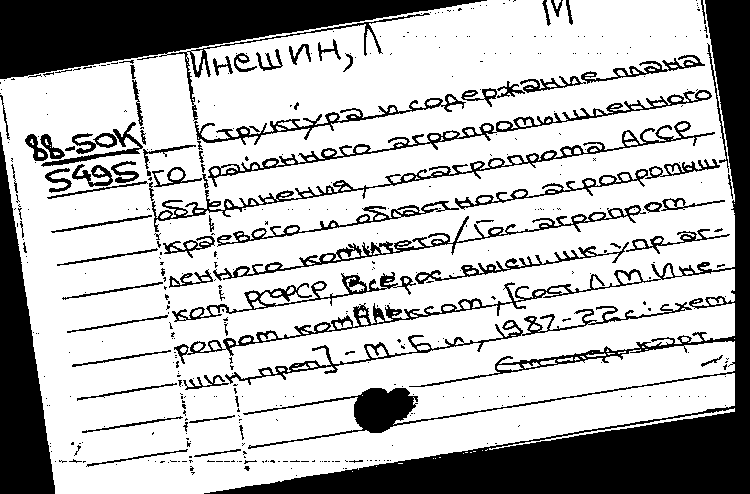 М
Инешин, Л
Структура и содержание плана
88-50К
5495
го районного агропромышленного
объединения, госагропрома АССР,
краевого и областного агропромыш-
ленного комитета/Гос. агропром.
ком. РСФСР, Всерос. высш. шк. упр. аг-
ропром. комплексом; [Сост. Л.М. Ине-
шин, преп]. - М.: Б. и., 1987. - 22 с.: схем.
След. карт.